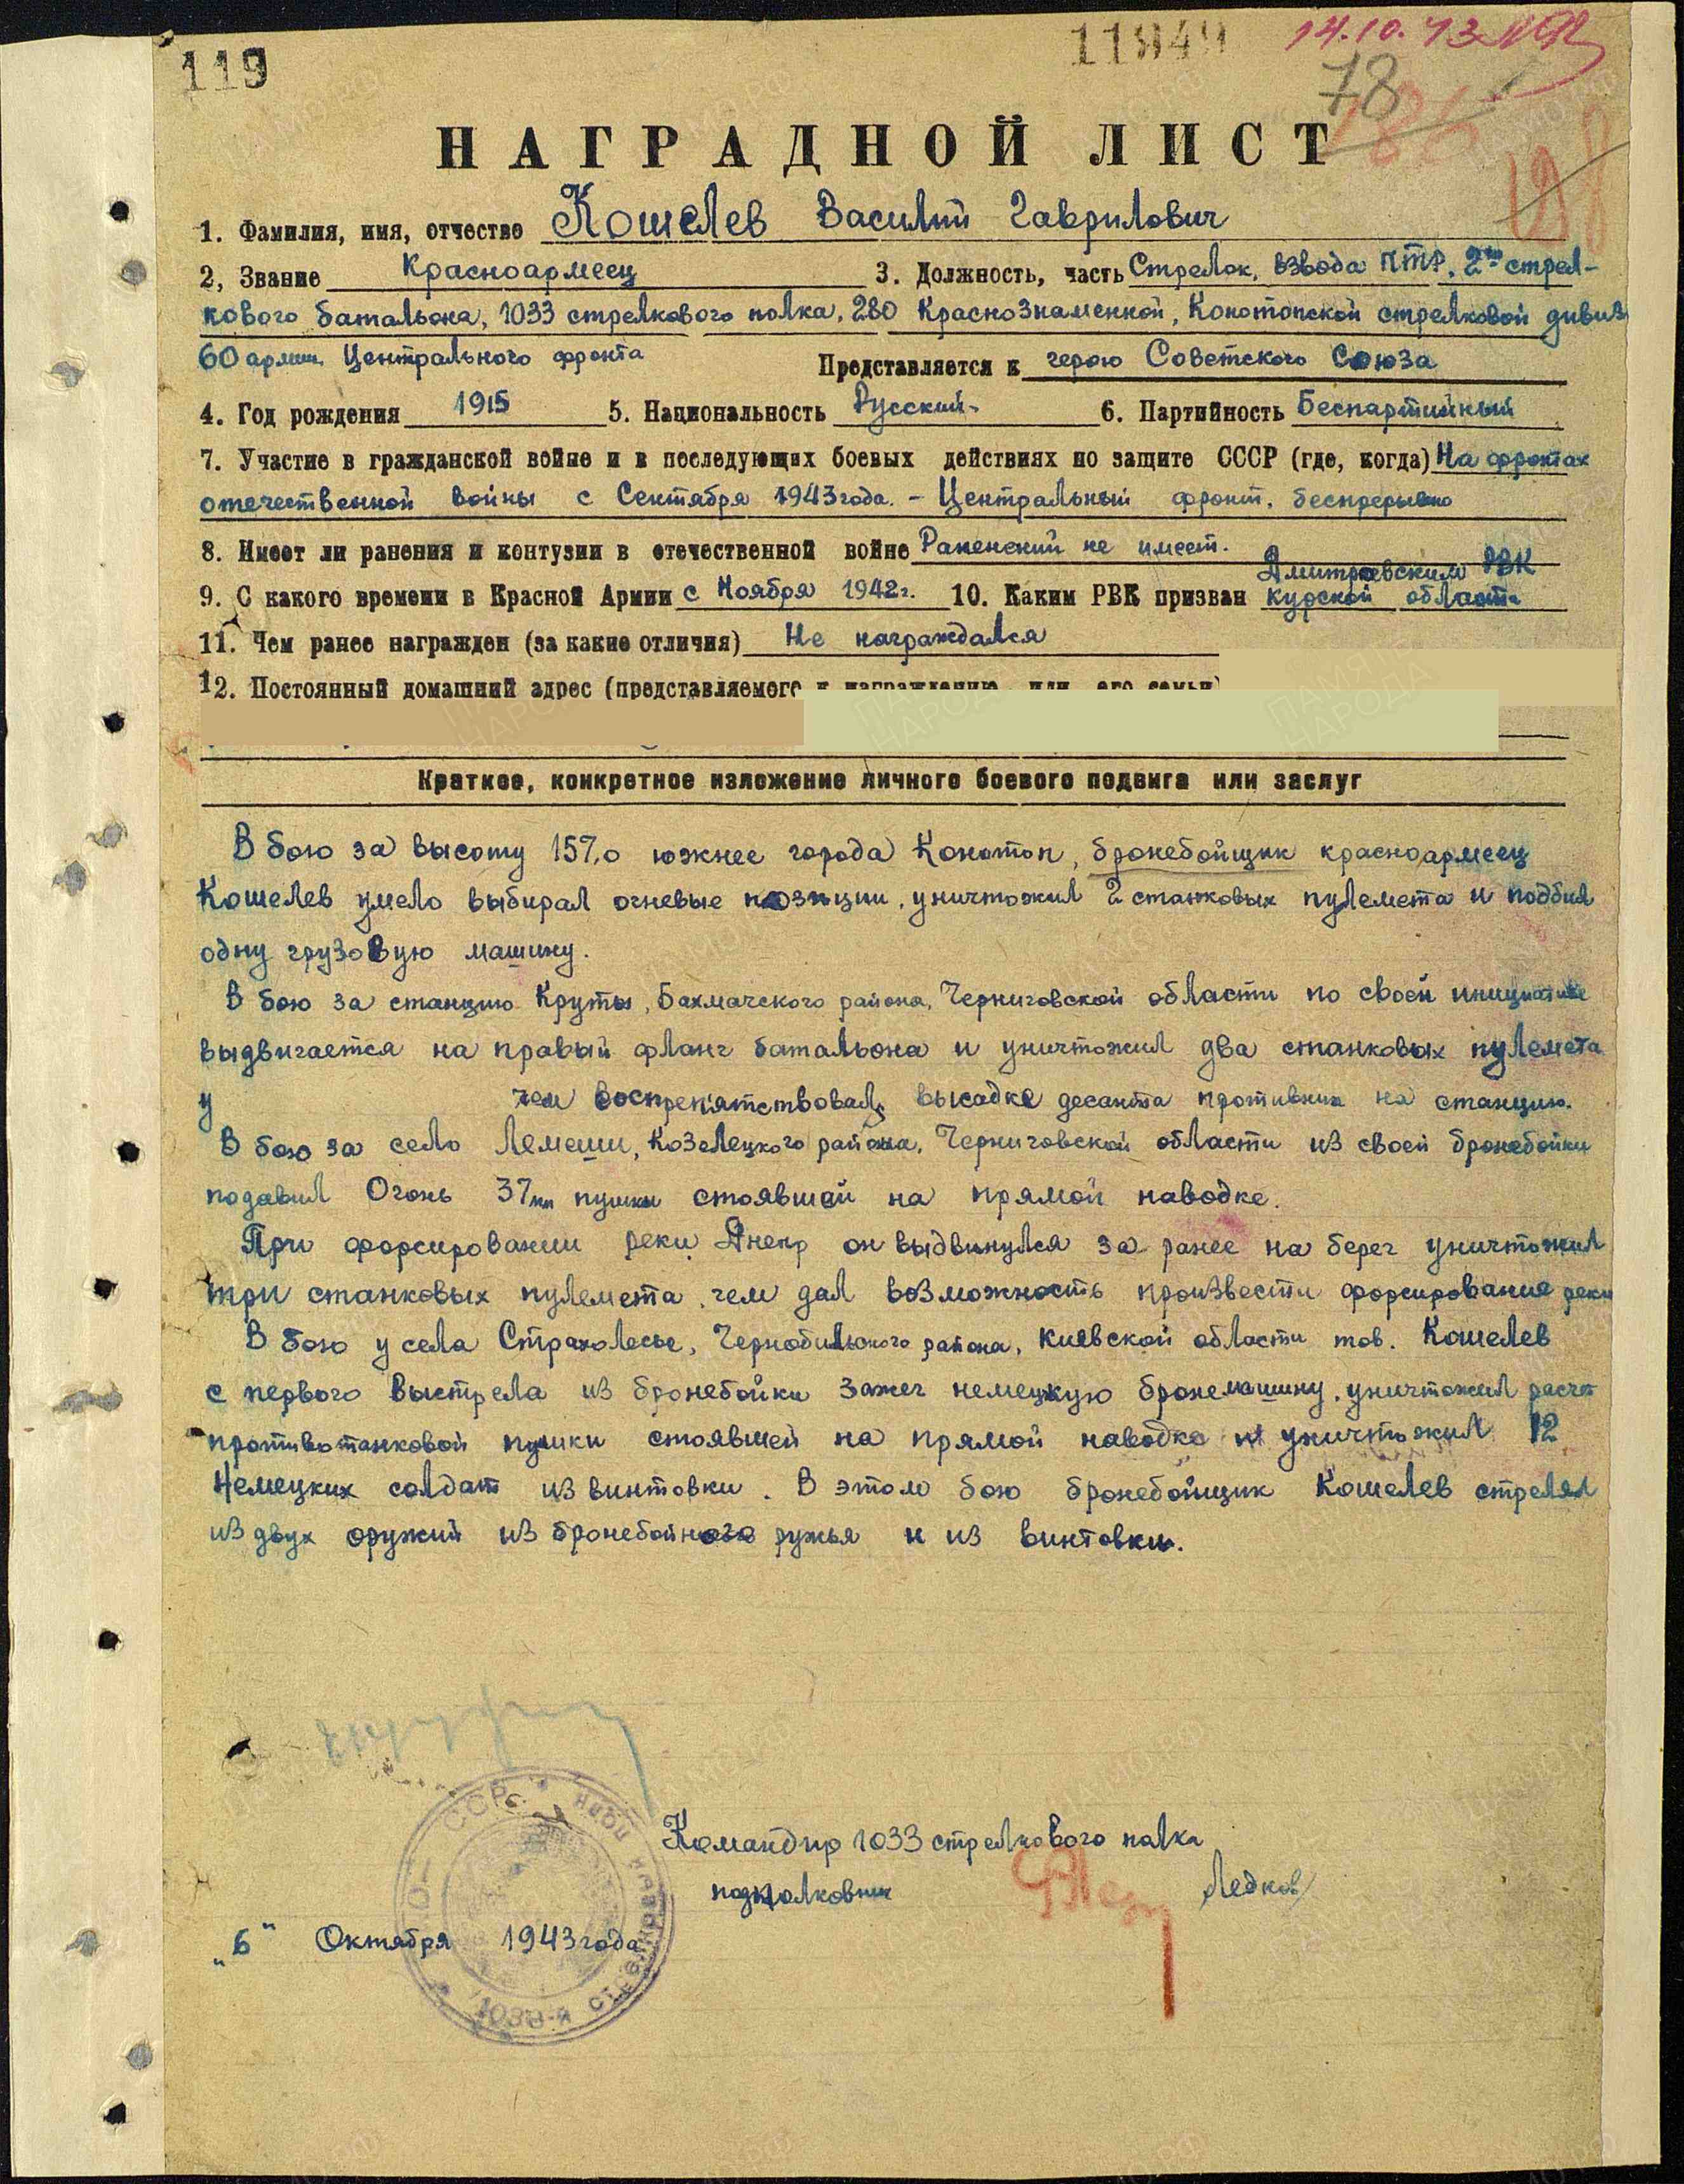 119
11949
14.10.43
78
НАГРАДНОЙ ЛИСТ
1. Фамилия, имя, отчество Кошелев Василий Гаврилович
2, Звание Красноармеец 3. Должность, часть Стрелок, взвода ПТР, 2го стрел-
кового батальона, 1033 стрелкового полка, 280 Краснознаменной, Конотопской стрелковой дивиз
60 армии Центрального фронта Представляется к герою Советского Союза
4. Год рождения 1915 5. Национальность Русский- 6. Партийность Беспартийный
7. Участие в гражданской войне и в последующих боевых действиях по защите СССР (где, когда) На фронтах
отечественной войны с Сентября 1943 года. - Центральный фронт, беспрерывно
8. Имеет ли ранения и контузии в отечественной войне Ранений не имеет.
9. С какого времени в Красной Армии с Ноября 1942г. 10. Каким РВК призван Дмитриевским РВК
Курской области
11. Чем ранее награжден (за какие отличия) Не награждался
12. Постоянный домашний адрес (представляемого к награждению, или его семьи)
Краткое, конкретное изложение личного боевого подвига или заслуг
В бою за высоту 157,0 южнее города Конотоп, бронебойщик красноармеец
Кошелев умело выбирал огневые позиции, уничтожил 2 станковых пулемета и подбил
одну грузовую машину.
В бою за станцию Круты, Бахмачского района, Черниговской области по своей инициативе
выдвигается на правый фланг батальона и уничтожил два станковых пулемета
у чем воспрепятствовал высадке десанта противника на станцию.
В бою за село Лемеши, Козелецкого района, Черниговской области из своей бронебойки
подавил Огонь 37мм пушки стоявшей на прямой наводке.
При форсировании реки Днепр он выдвинулся за ранее на берег уничтожил
три станковых пулемета, чем дал возможность произвести форсирование реки
В бою у села Страхолесье, Чернобильского района, Киевской области тов. Кошелев
с первого выстрела из бронебойки зажег немецкую бронемашину, уничтожил расчет
противотанковой пушки стоявшей на прямой наводке и уничтожил 12
Немецких солдат из винтовки. В этом бою бронебойщик Кошелев стрелял
из двух оружий из бронебойного ружья и из винтовки.
Командир 1033 стрелкового полка
подполковник Ледков
"6" Октября 1943 года